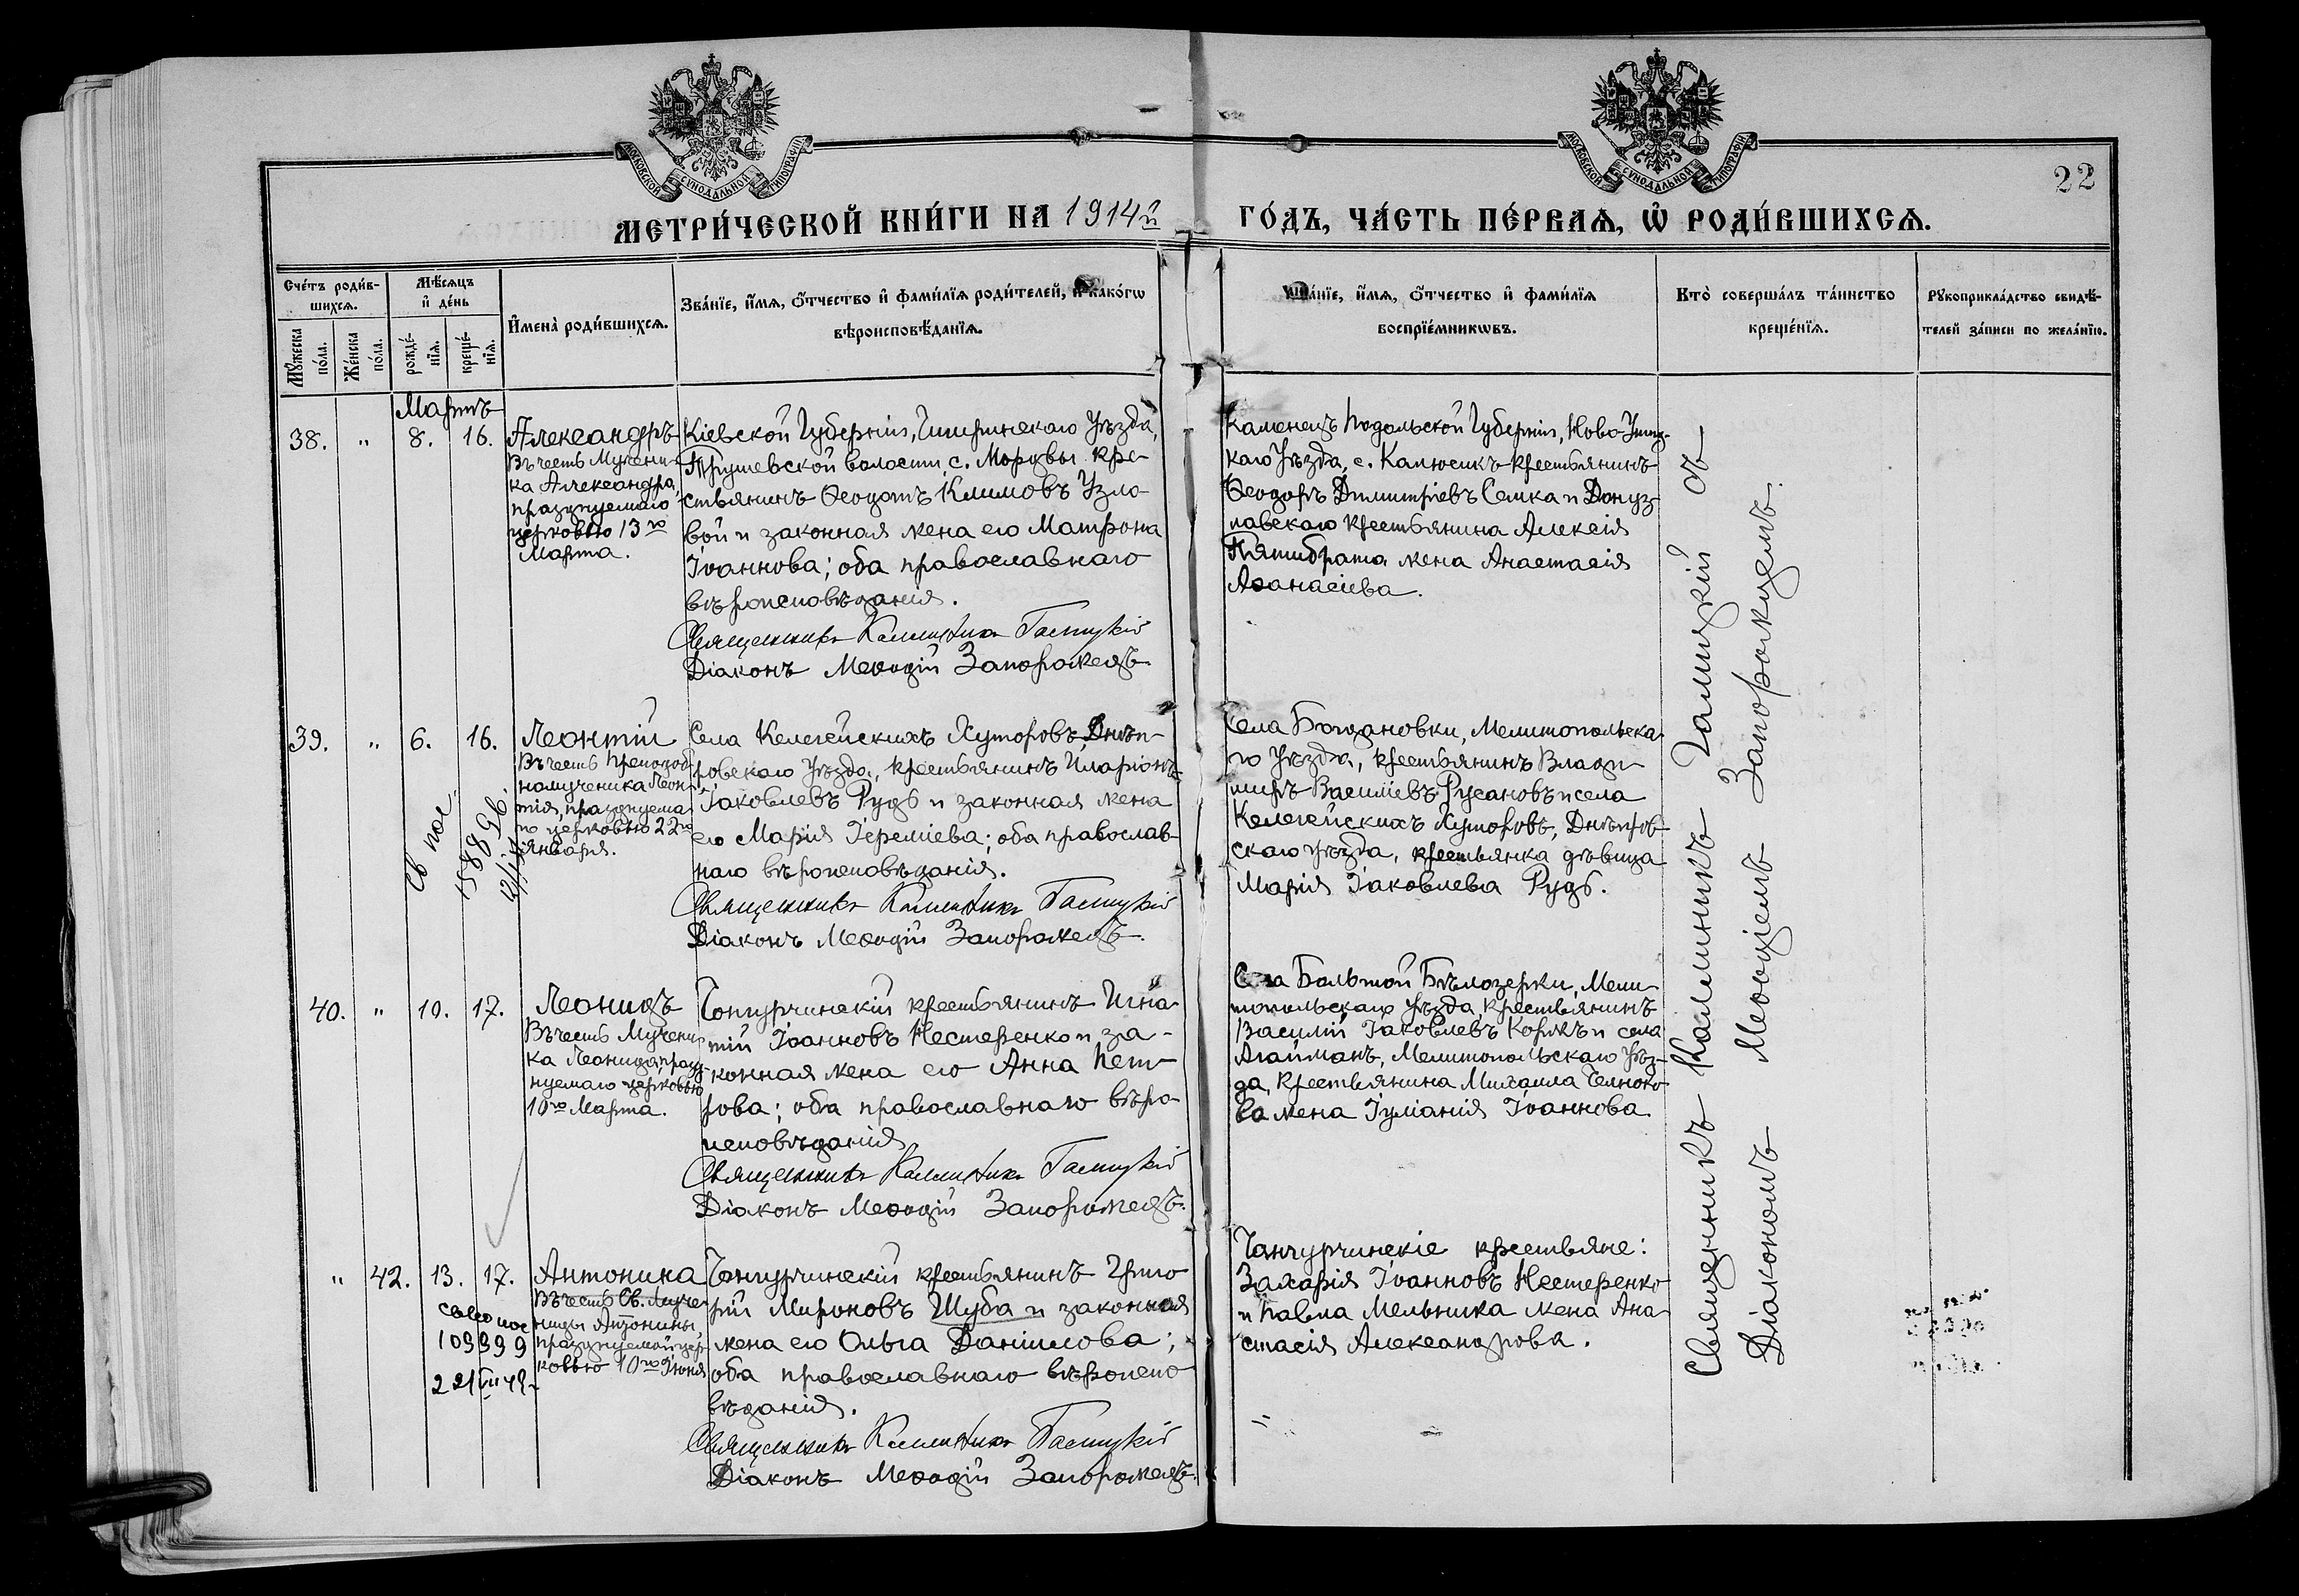 МОСКОВСКОЙ СУНОДАЛЬНОЙ ТИПОГРАФІИ
МОСКОВСКОЙ СУНОДАЛЬНОЙ ТИПОГРАФІИ
22
МЕТРИ́ЧЕСКОЙ КНИ́ГИ НА 1914й ГО́ДЪ, ЧА́СТЬ ПЕ́РВАѦ, Ѡ РОДИ́ВШИХСѦ.
Сче́тъ роди́в-
шихсѧ.
Мꙋ́жеска по́ла.
Же́нска по́ла.
Мѣ́сѧцъ
и де́нь
рожде́-
нїѧ.
креще́-
нїѧ.
И́мена̀ роди́вшихсѧ.
Зва́нїе, и́мѧ, ѻ́тчество и фами́лїѧ роди́телей, и како́гѡ
вѣроисповѣ́данїѧ.
Зва́нїе, и́мѧ, ѻ́тчество и фами́лїѧ
воспрїе́мникѡвъ.
Кто̀ соверша́лъ та́инство
креще́нїѧ.
Рꙋкоприкла́дство свидѣ́-
телей за́писи по жела́нїю.
Мартъ
38. " 8. 16.
Александръ
Въ честь Мучени-
ка Александра,
празднуемаго
церковью 13го
Марта.
Кіевской Губерніи, Чигиринскаго Уѣзда,
Трушевской волости, с. Мордвы кре-
стьянинъ Ѳеодотъ Климовъ Узло-
вой и законная жена его Матрона
Іоаннова; оба православнаго
вѣроисповѣданія.
Священникъ Каллиникъ Галицкій
Діаконъ Меѳодій Запорожецъ
Каменецъ Подольской Губерніи, Ново-Ушиц-
каго Уѣзда, с. Калюсикъ крестьянинъ
Ѳеодоръ Димитріевъ Семка и Донуз-
лавскаго крестьянина Алексія
Пятибрата жена Анастасія
Аѳанасіева.
39. " 6. 16.
Леонтій
Въ честь Преподоб-
номученика Леон-
тія, празднуема-
го церковью 22го
Января.
Св пос
Села Келегейскихъ Хуторовъ Днѣп-
ровскаго Уѣзда, крестьянинъ Иларіонъ
Іаковлевъ Рудь и законная жена
его Марія Іереміева; оба православ-
наго вѣроисповѣданія.
Священникъ Каллиникъ Галицкій
Діаконъ Меѳодій Запорожецъ.
Села Богдановки, Мелитопольска-
го Уѣзда, крестьянинъ Влади-
миръ Василіевъ Русановъ и села
Келегейскихъ Хуторовъ, Днѣпров-
скаго Уѣзда, крестьянка дѣвица
Марія Іаковлева Рудь.
40. " 10. 17.
Леонидъ
Въ честь Мучени-
ка Леонида, празд-
нуемаго церковью
10го Марта.
Чонгурчинскій крестьянинъ Игна-
тій Іоанновъ Нестеренко и за-
конная жена его Анна Пет-
рова; оба православнаго вѣро-
исповѣданія
Священникъ Каллиникъ Галицкій
Діаконъ Меѳодій Запорожецъ.
Села Большой Бѣлозерки, Мели-
топольскаго Уѣзда, крестьянинъ
Василій Іаковлевъ Коржъ и села
Агайманъ, Мелитопольскаго Уѣз-
да, крестьянина Михаила Челноко-
ва жена Іуліанія Іоаннова
" 42. 13. 17.
Антонина
Въ честь Св. Муче-
ницы Антонины
празднуемой цер-
ковью 10го Іюня
109999
Чонгурчинскій крестьянинъ Григо-
рій Мироновъ Шуба и законная
жена его Ольга Даніилова;
оба православнаго вѣроиспо-
вѣданія.
Священникъ Каллиникъ Галицкій
Діаконъ Меѳодій Запорожецъ.
Чонгурчинскіе крестьяне:
Захарія Іоанновъ Нестеренко
и Павла Мельника жена Ана-
стасія Александрова.
Священникъ Каллиникъ Галицкій съ
Діакономъ Меѳодіемъ Запорожцемъ.